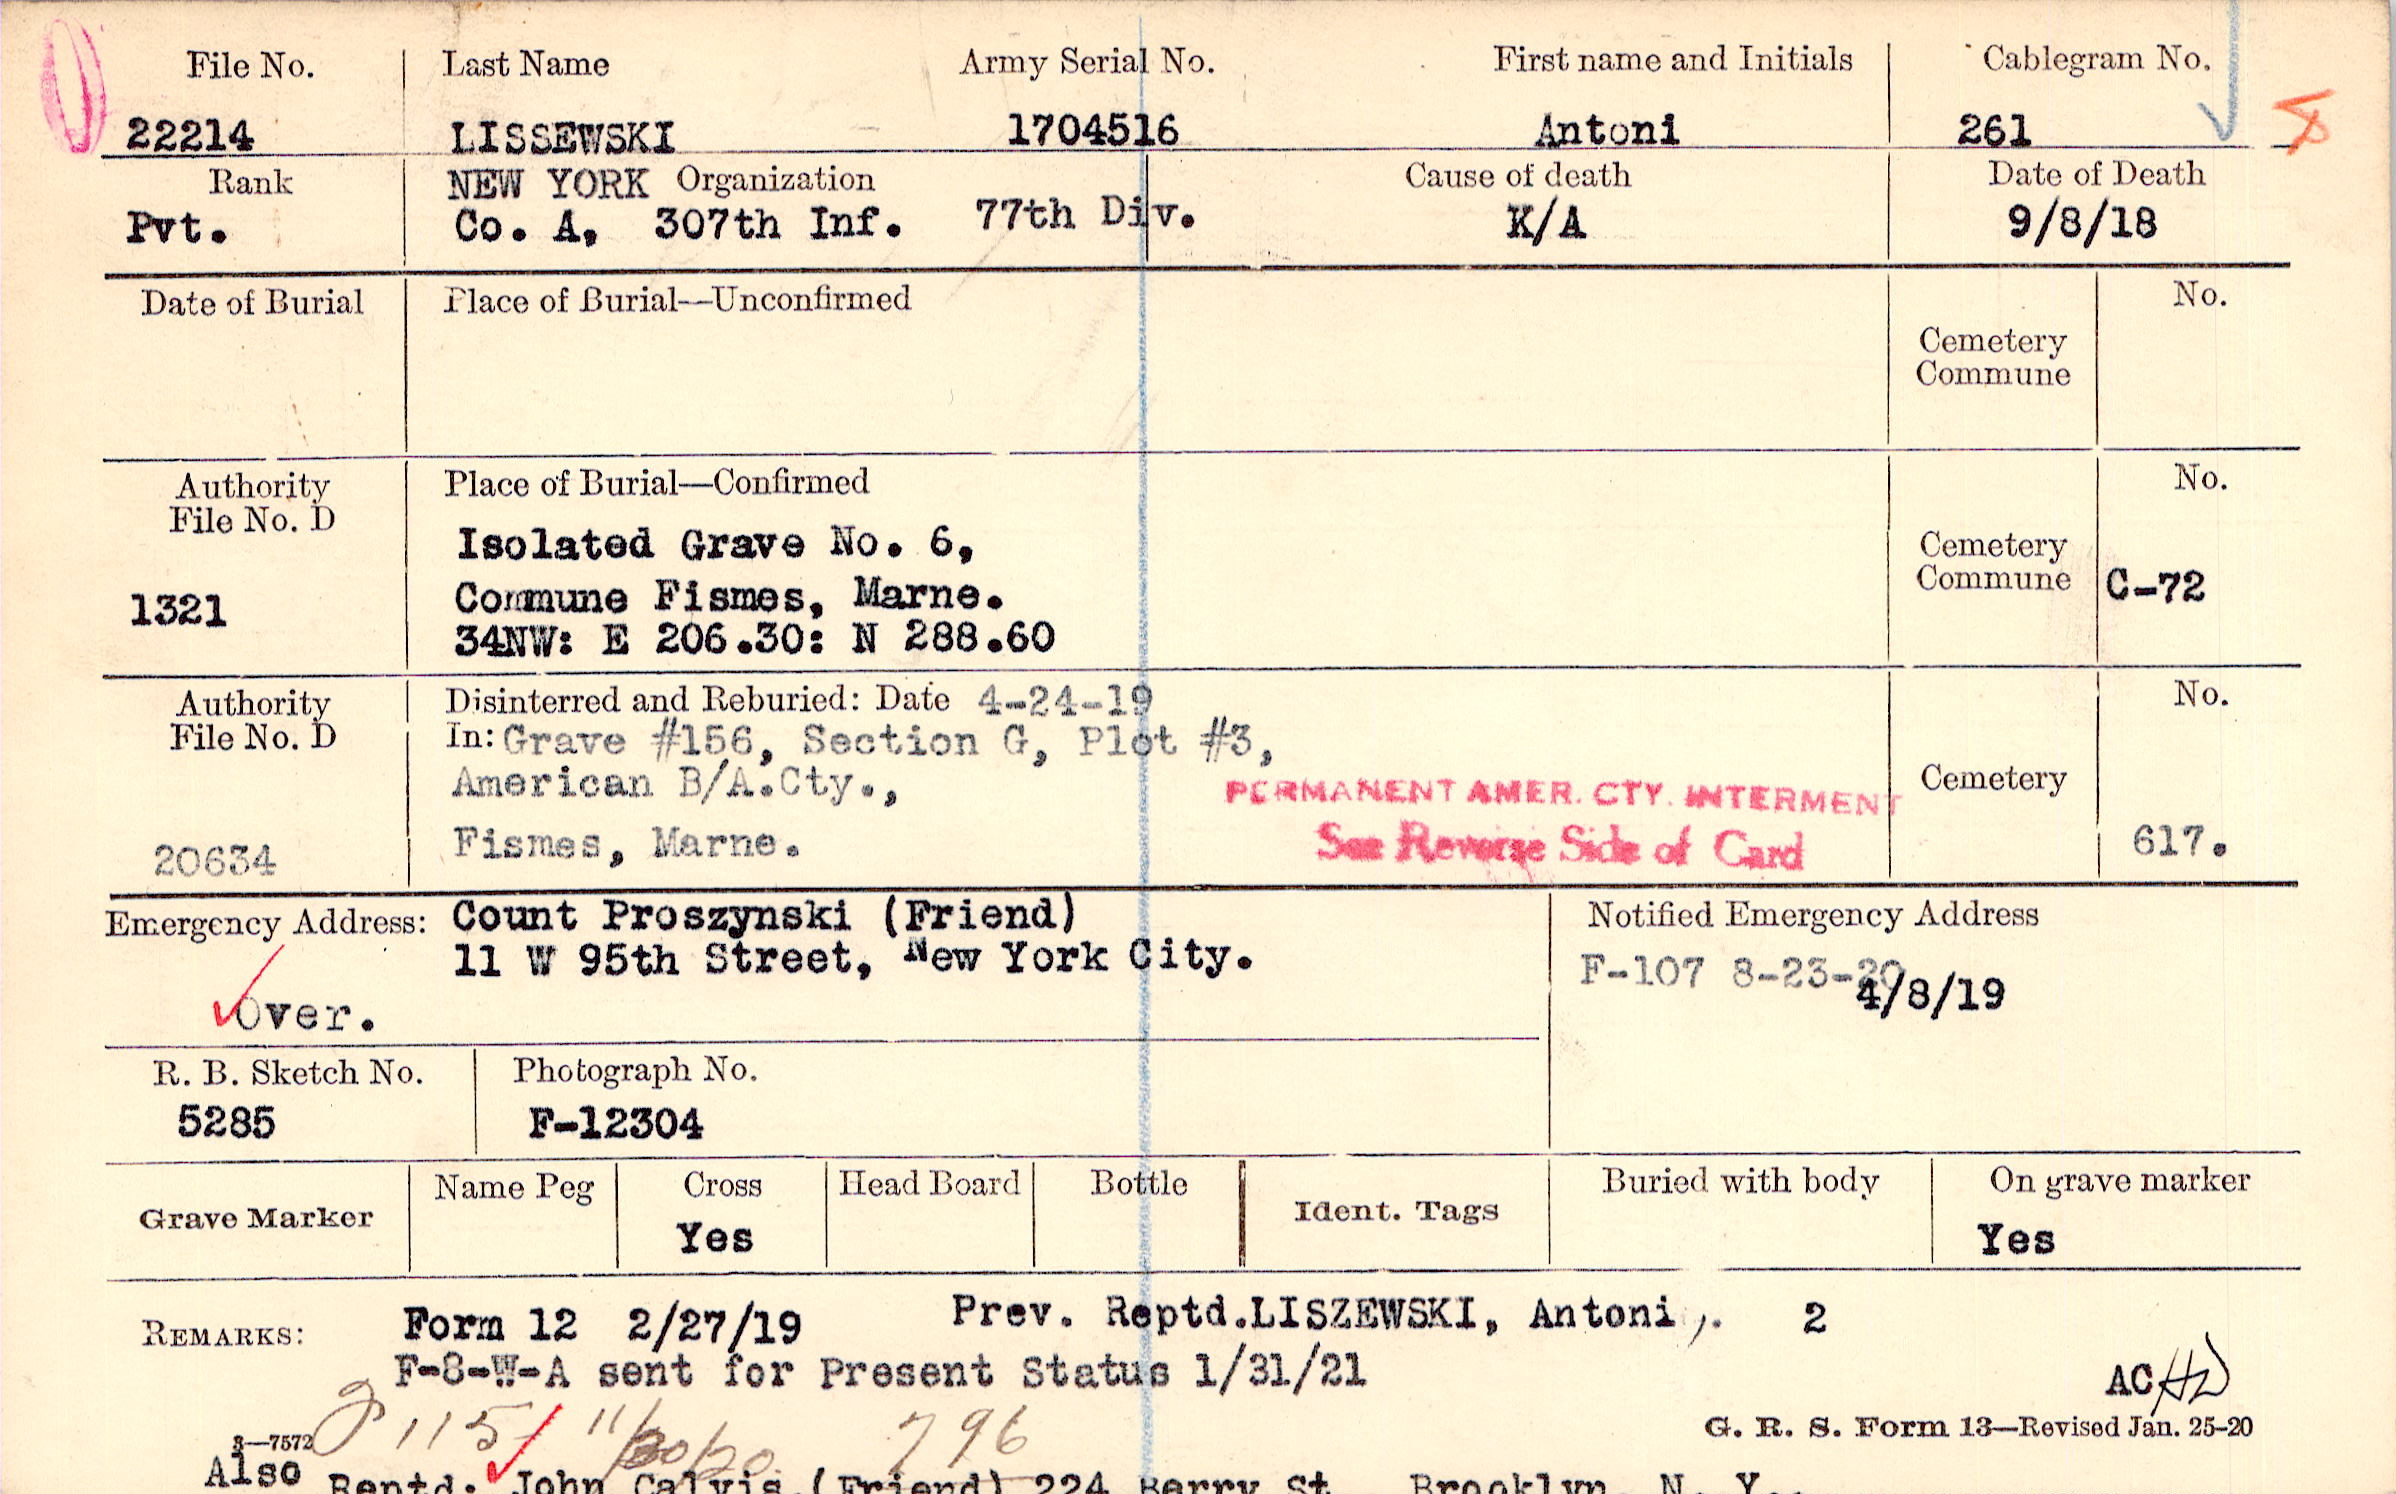 File No. Last Name Army Serial No. First name and Initials Cablegram No.
22214 LISSEWSKI 1704516 Antoni 261
Rank NEW YORK Organization Cause of death Date of Death
Pvt. Co. A, 307th Inf. 77th Div. K/A 9/8/18
Date of Burial Place of Burial—Unconfirmed No.
Cemetery
Commune
Authority Place of Burial—Confirmed No.
File No. D
Isolated Grave No. 6, Cemetery
1321 Commune Fismes, Marne. Commune C-72
34NW: E 206.30: N 288.60
Authority Disinterred and Reburied: Date 4-24-19 No.
File No. D In: Grave #156, Section G, Plot #3,
American B/A.Cty., PERMANENT AMER. CTY. INTERMENT Cemetery
20634 Fismes, Marne. See Reverse Side of Card 617.
Emergency Address: Count Proszynski (Friend) Notified Emergency Address
11 W 95th Street, New York City. F-107 8-23-20
Over. 4/8/19
R. B. Sketch No. Photograph No.
5285 F-12304
Grave Marker Name Peg Cross Head Board Bottle Ident. Tags Buried with body On grave marker
Yes Yes
REMARKS: Form 12 2/27/19 Prev. Reptd. LISZEWSKI, Antoni,. 2
F-8-W-A sent for Present Status 1/31/21 AC
115 11/30/20 796 G. R. S. Form 13—Revised Jan. 25-20
3—7572
Also Reptd: John Calvis (Friend) 224 Berry St. Brooklyn, N. Y.